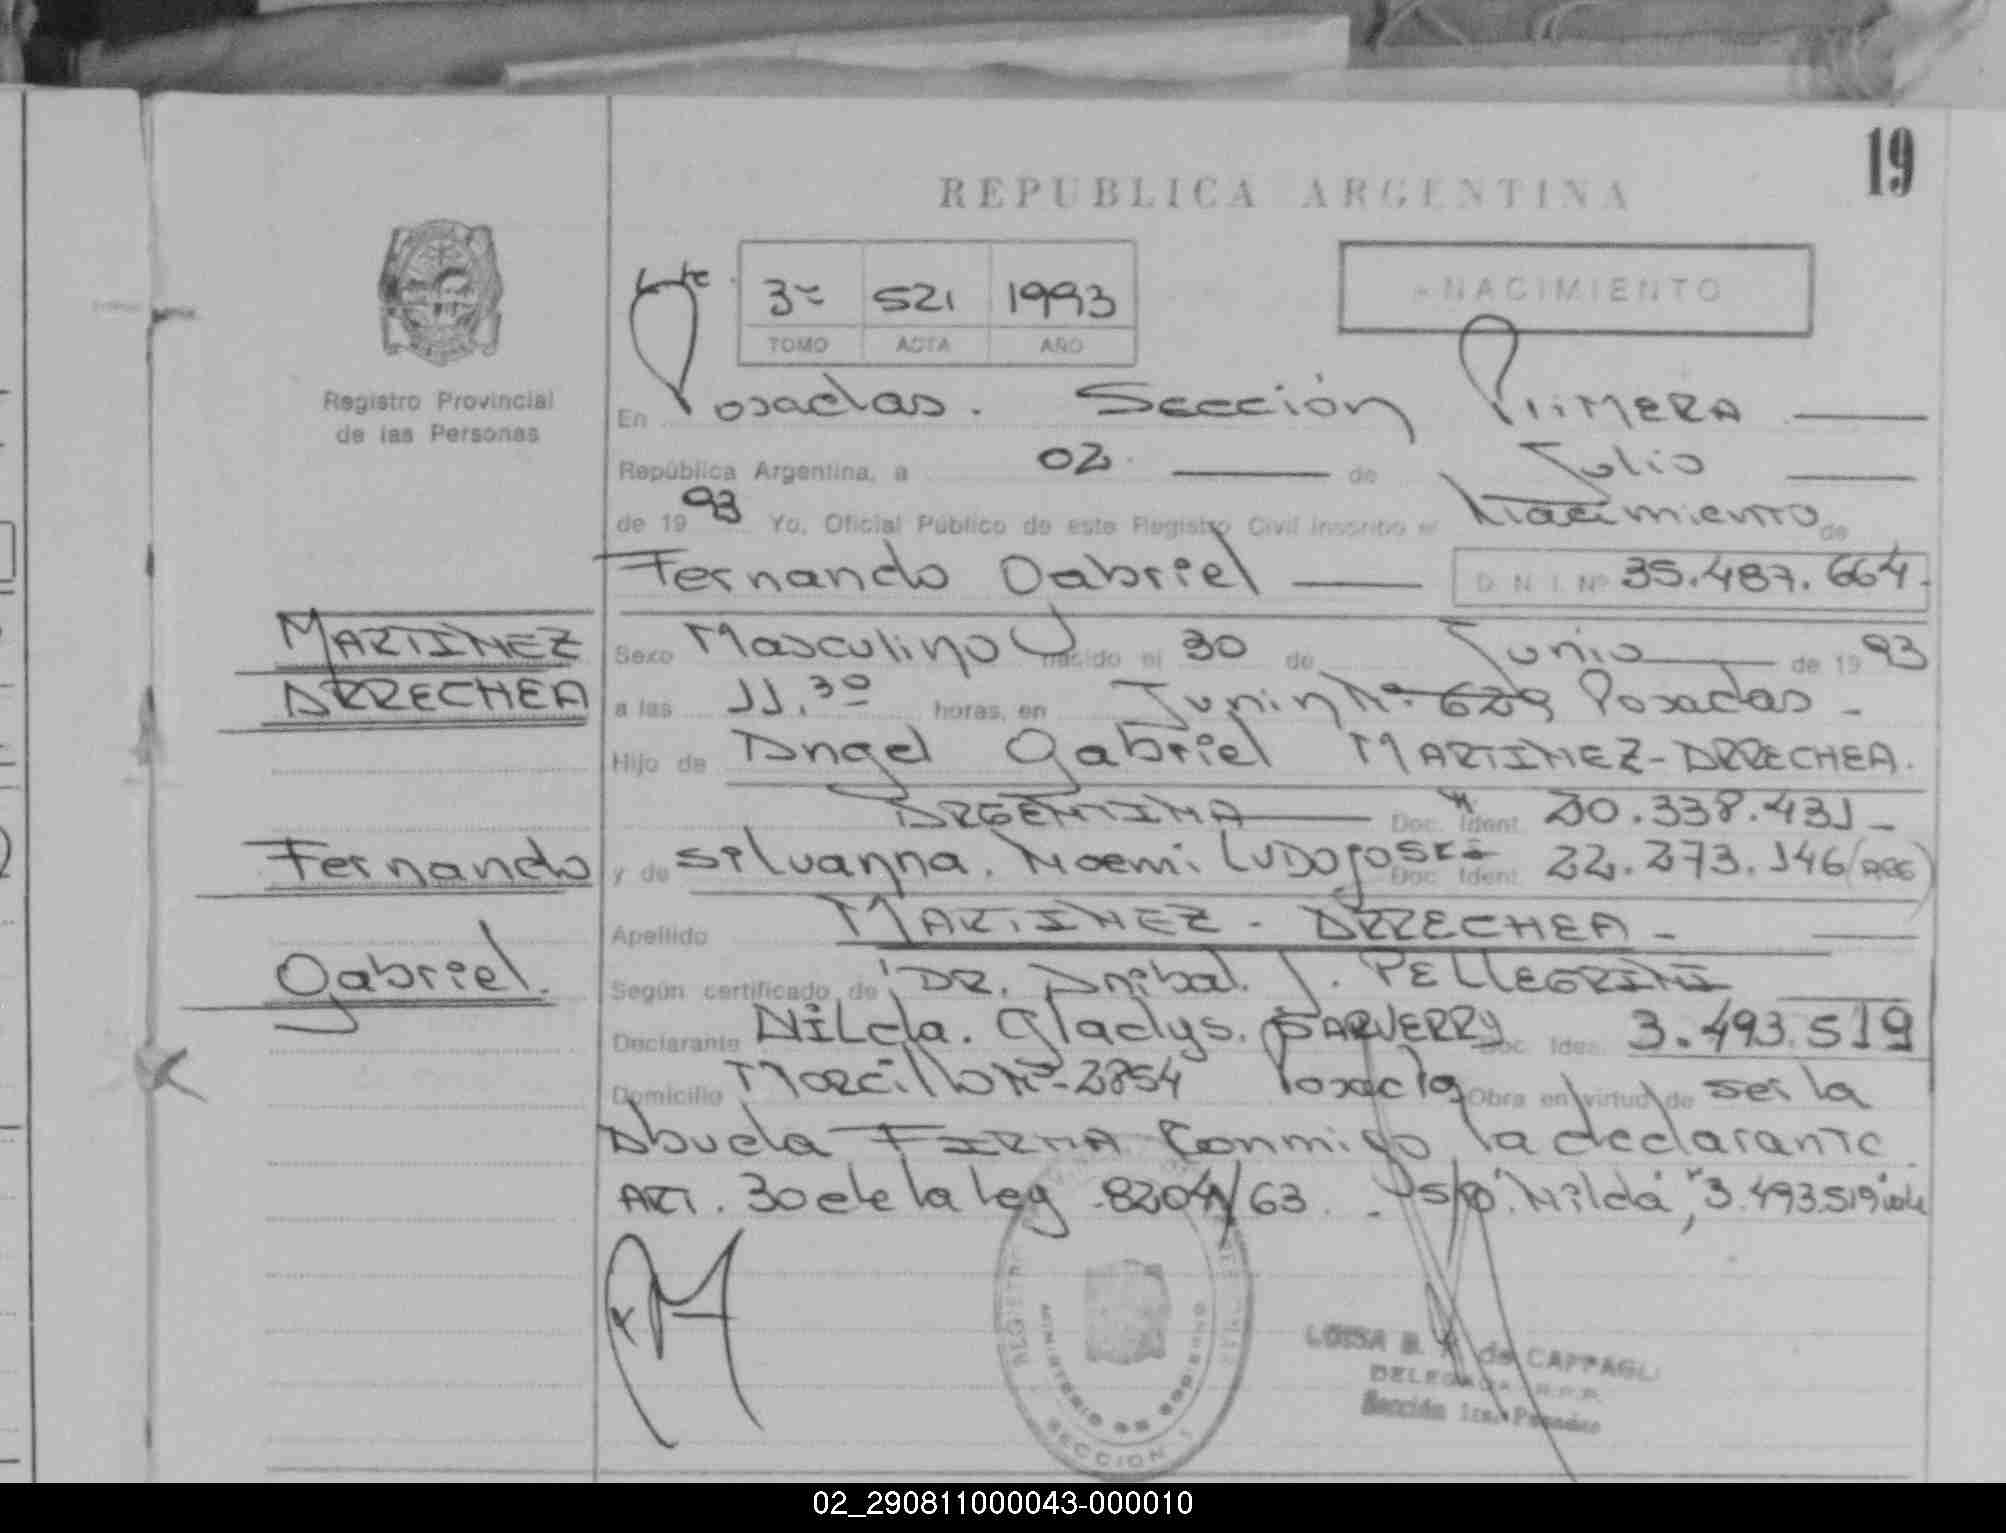 19
REPUBLICA ARGENTINA
3º 521 1993
TOMO ACTA AÑO
NACIMIENTO
Registro Provincial
de las Personas
En Posadas. Sección Primera
República Argentina, a 02 de Julio
de 1993 Yo, Oficial Público de este Registro Civil inscribo el Nacimiento de
Fernando Gabriel D N I Nº 35.487.664.
MARTINEZ
ARRECHEA
Sexo Masculino nacido el 30 de Junio de 1993
a las 11.30 horas, en Junin Nº 629 Posadas -
Hijo de Angel Gabriel MARTINEZ-ARRECHEA.
ARGENTINA Doc. Ident. 20.338.431 -
Fernando
y de Silvanna. Noemi Doc. Ident. 22.273.146 (ARG)
Apellido MARTINEZ - ARRECHEA -
Gabriel.
Según certificado de DR. Anibal. J. PELLEGRINI
Declarante Nilda. Gladys. Doc. Iden. 3.493.519
Domicilio Nº 2854 Posadas Obra en virtud de ser la
Abuela FIRMA Conmigo la declarante
ART. 30 de la ley 8204/63. - s/r "Nilda", "3.493.519" vale
REGISTRO
MINISTERIO DE GOBIERNO
SECCION 1
LUISA B. de CAPPAGLI
DELEGADA R.P.P.
Sección 1ra. Posadas
02_290811000043-000010